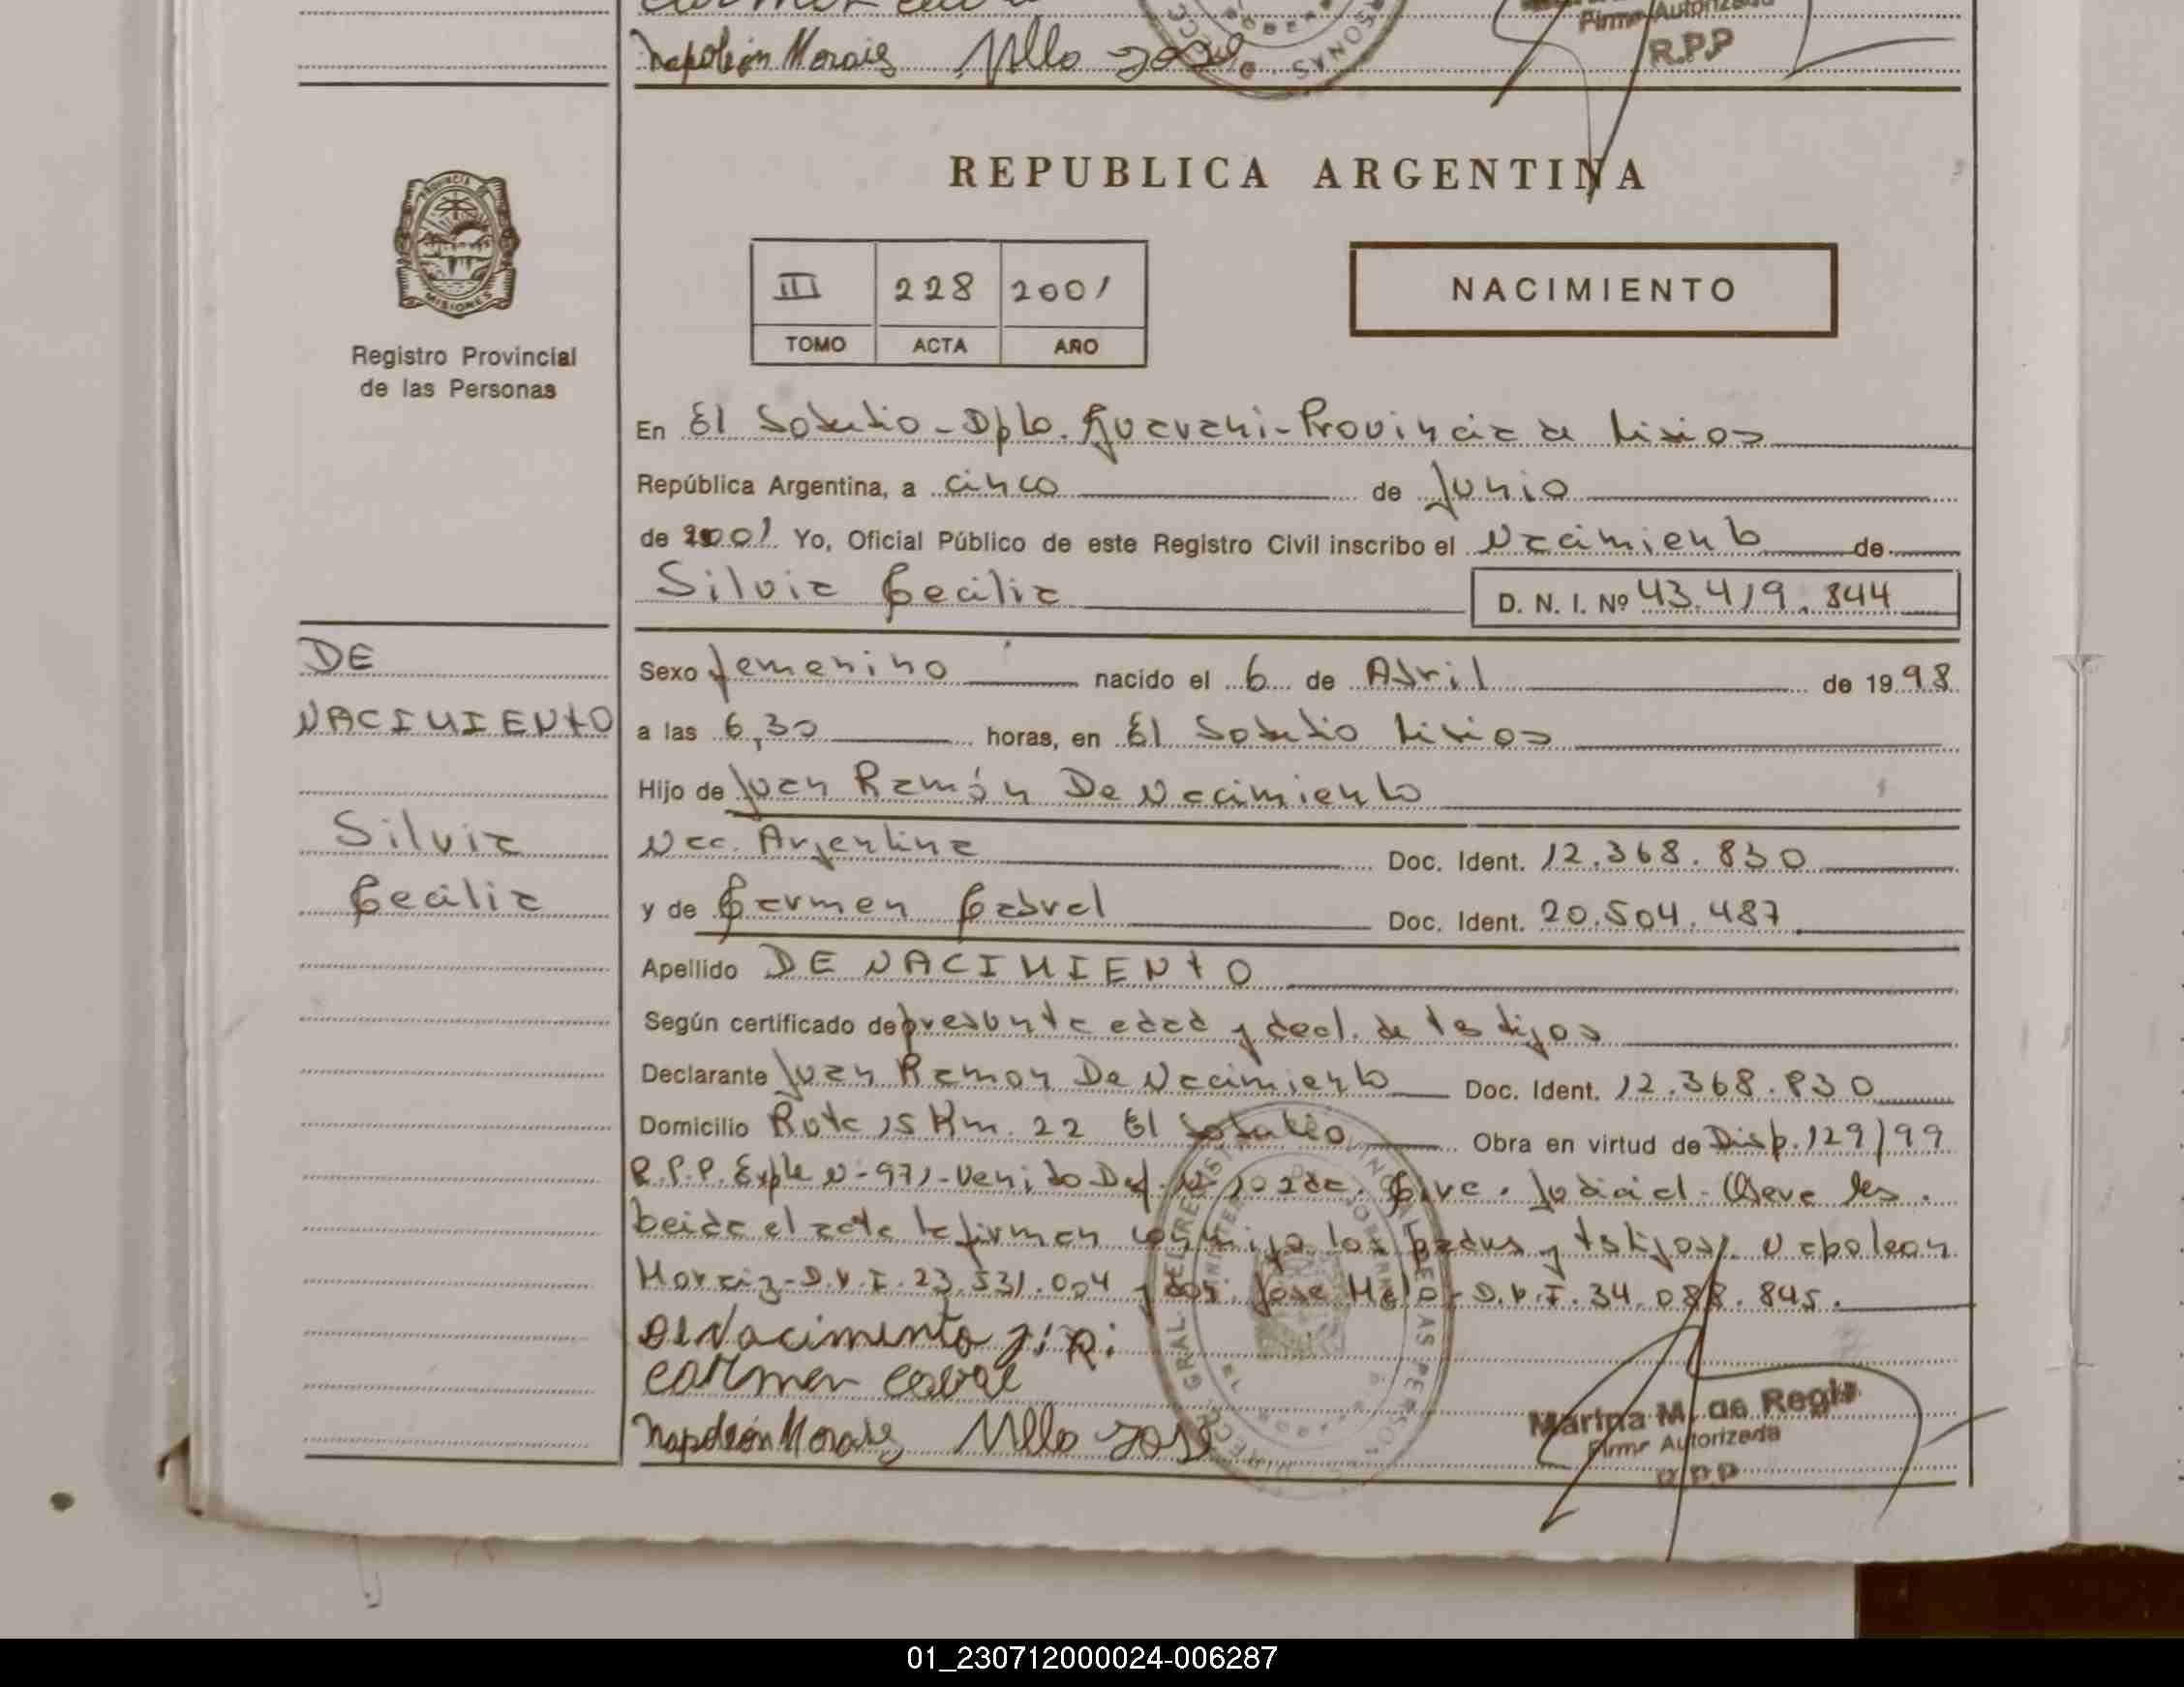 Napoleón Morais Mello José
Firma Autorizada
R.P.P
REPUBLICA ARGENTINA
PROVINCIA DE
MISIONES
III 228 2001
TOMO ACTA AÑO
NACIMIENTO
Registro Provincial
de las Personas
En El Soberbio - Dpto. Guarani - Provincia de Misiones
República Argentina, a cinco de Junio
de 2001 Yo, Oficial Público de este Registro Civil inscribo el Nacimiento de
Silvia Cecilia D. N. I. Nº 43.419.844
DE
NACIMIENTO
Silvia
Cecilia
Sexo femenino nacido el 6 de Abril de 1998
a las 6,30 horas, en El Soberbio Misiones
Hijo de Juan Ramón De Nacimiento
Nac. Argentina Doc. Ident. 12.368.830
y de Carmen Cabral Doc. Ident. 20.504.487
Apellido DE NACIMIENTO
Según certificado de presunta edad y decl. de testigos
Declarante Juan Ramon De Nacimiento Doc. Ident. 12.368.830
Domicilio Ruta 15 Km. 22 El Soberbio Obra en virtud de Disp. 129/99
R.P.P. Expte N-971- Judicial
beida el acta la firman conmigo los padres y testigos Napoleon
Moraiz - D.N.I. 23.531.004 y don Jose Melo - D.N.I. 34.088.845.
De Nacimento J. R.
Carmen Cabral
Napoleón Morais Mello José
Marina M. de Regis
Firma Autorizada
R.P.P
01_230712000024-006287